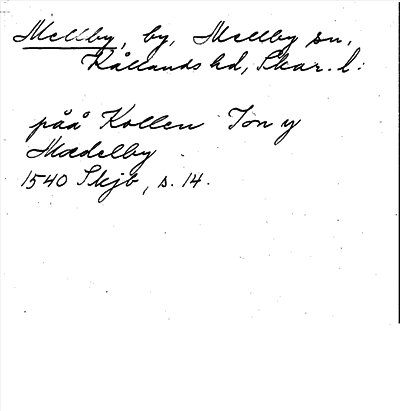 Mellby, by, Mellby sn,
Kållands hd, Skar. l:
påå Kollen Ion y
Mædelby
1540 Skjb, s. 14.